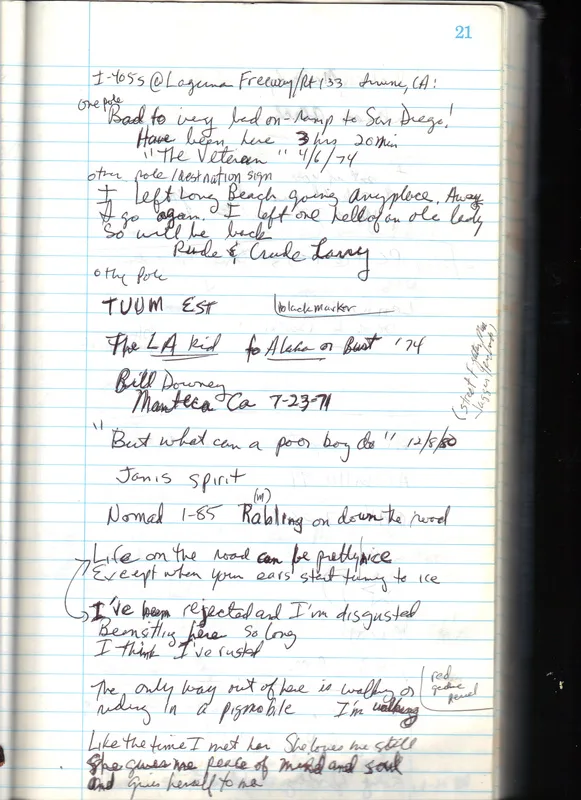 21
I-405s @ Laguna Freeway/Rt 133 Irvine, CA:
one pole
Bad to very bad on-ramp to San Diego!
Have been here 3 hrs 20 min
"The Veteran" 4/6/74
other pole/destination sign
I left Long Beach going anyplace. Away
I go again. I left one hell of an ole lady
So will be back
Rude & Crude Larry
other pole
TUUM EST black marker
The LA Kid to Alaska or Bust '74
Bill Downey
Manteca Ca 7-23-71
"But what can a poor boy do" 12/8/80
(street fighting
Jagger
Janis spirit
(m)
Nomad 1-85 Rabling on down the road
Life on the road can be pretty nice
Except when your ears start turning to ice
I've been rejected and I'm disgusted
Been sitting here so long
I think I've rusted
The only way out of here is walking or
riding in a pigmobile I'm walking
red
pencil
Like the time I met her She loves me still
She gives me peace of mind and soul
and gives herself to me